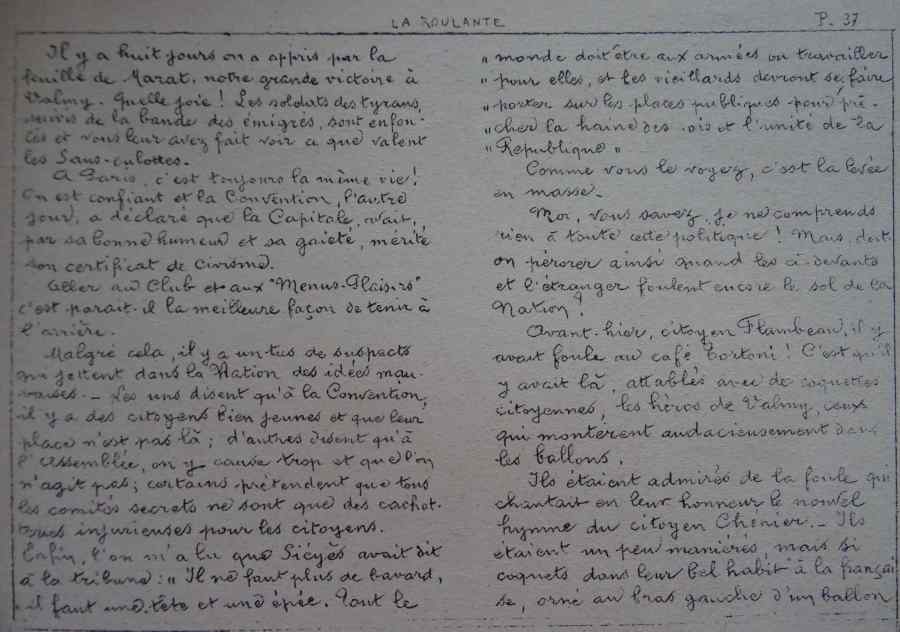 LA ROULANTE
P. 37
Il y a huit jours on a appris par la
feuille de Marat, notre grande victoire à
Valmy. Quelle joie ! Les soldats des tyrans,
suivis de la bande des émigrés, sont enfon-
cés et vous leur avez fait voir ce que valent
les Sans-culottes.
A Paris, c'est toujours la même vie !
On est confiant et la Convention, l'autre
jour, a déclaré que la Capitale, avait,
par sa bonne humeur et sa gaieté, mérité
son certificat de Civisme.
Aller au Club et aux "Menus-Plaisirs"
c'est parait-il la meilleure façon de tenir à
l'arrière.
Malgré cela, il y a un tas de suspects
qui jettent dans la Nation des idées mau-
vaises. - Les uns disent qu'à la Convention,
il y a des citoyens bien jeunes et que leur
place n'est pas là ; d'autres disent qu'à
l'Assemblée, on y cause trop et que l'on
n'agit pas ; certains prétendent que tous
les comités secrets ne sont que des cachot-
teries injurieuses pour les citoyens.
Enfin, l'on m'a lu que Sieyès avait dit
à la tribune : " Il ne faut plus de bavard,
il faut une tête et une épée. Tout le
" monde doit être aux armées ou travailler
" pour elles, et les vieillards devront se faire
" porter sur les places publiques pour prê-
" cher la haine des rois et l'unité de la
" République "
Comme vous le voyez, c'est la levée
en masse.
Moi, vous savez, je ne comprends
rien à toute cette politique ! Mais, doit-
on pérorer ainsi quand les ci-devants
et l'étranger foulent encore le sol de la
Nation ?
Avant-hier, citoyen Flambeau, il y
avait foule au café Tortoni ! C'est qu'il
y avait là, attablés avec de coquettes
citoyennes, les héros de Valmy, ceux
qui montèrent audacieusement dans
les ballons.
Ils étaient admirés de la foule qui
chantait en leur honneur le nouvel
hymne du citoyen Chénier. - Ils
étaient un peu maniérés, mais si
coquets dans leur bel habit à la françai
se, orné au bras gauche d'un ballon